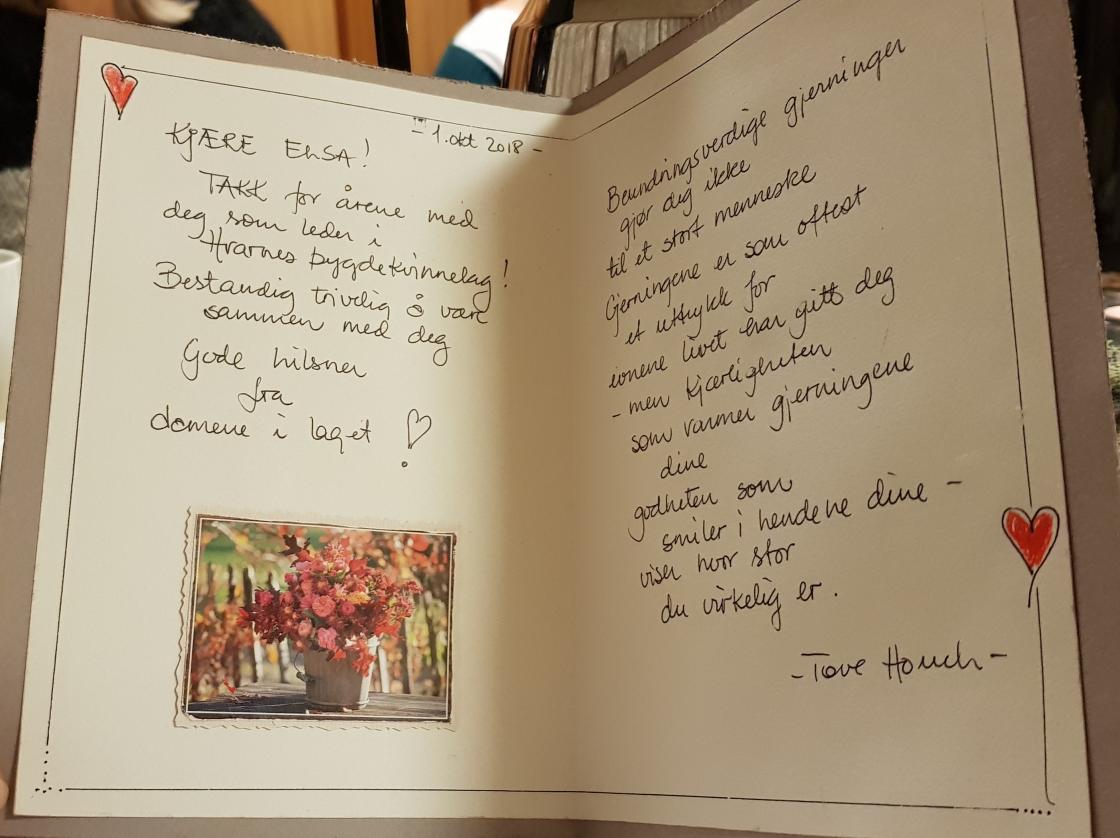 - 1. okt 2018 -
KJÆRE ELSA!
TAKK for årene med
deg som leder i
Hvarnes bygdekvinnelag!
Bestandig trivelig å være
sammen med deg
Gode hilsner
fra
damene i laget
Beundringsverdige gjerninger
gjør deg ikke
til et stort menneske
Gjerningene er som oftest
et uttrykk for
evnene livet har gitt deg
- men kjærligheten
som varmer gjerningene
dine
godheten som
smiler i hendene dine -
viser hvor stor
du virkelig er.
- Tove Houck -